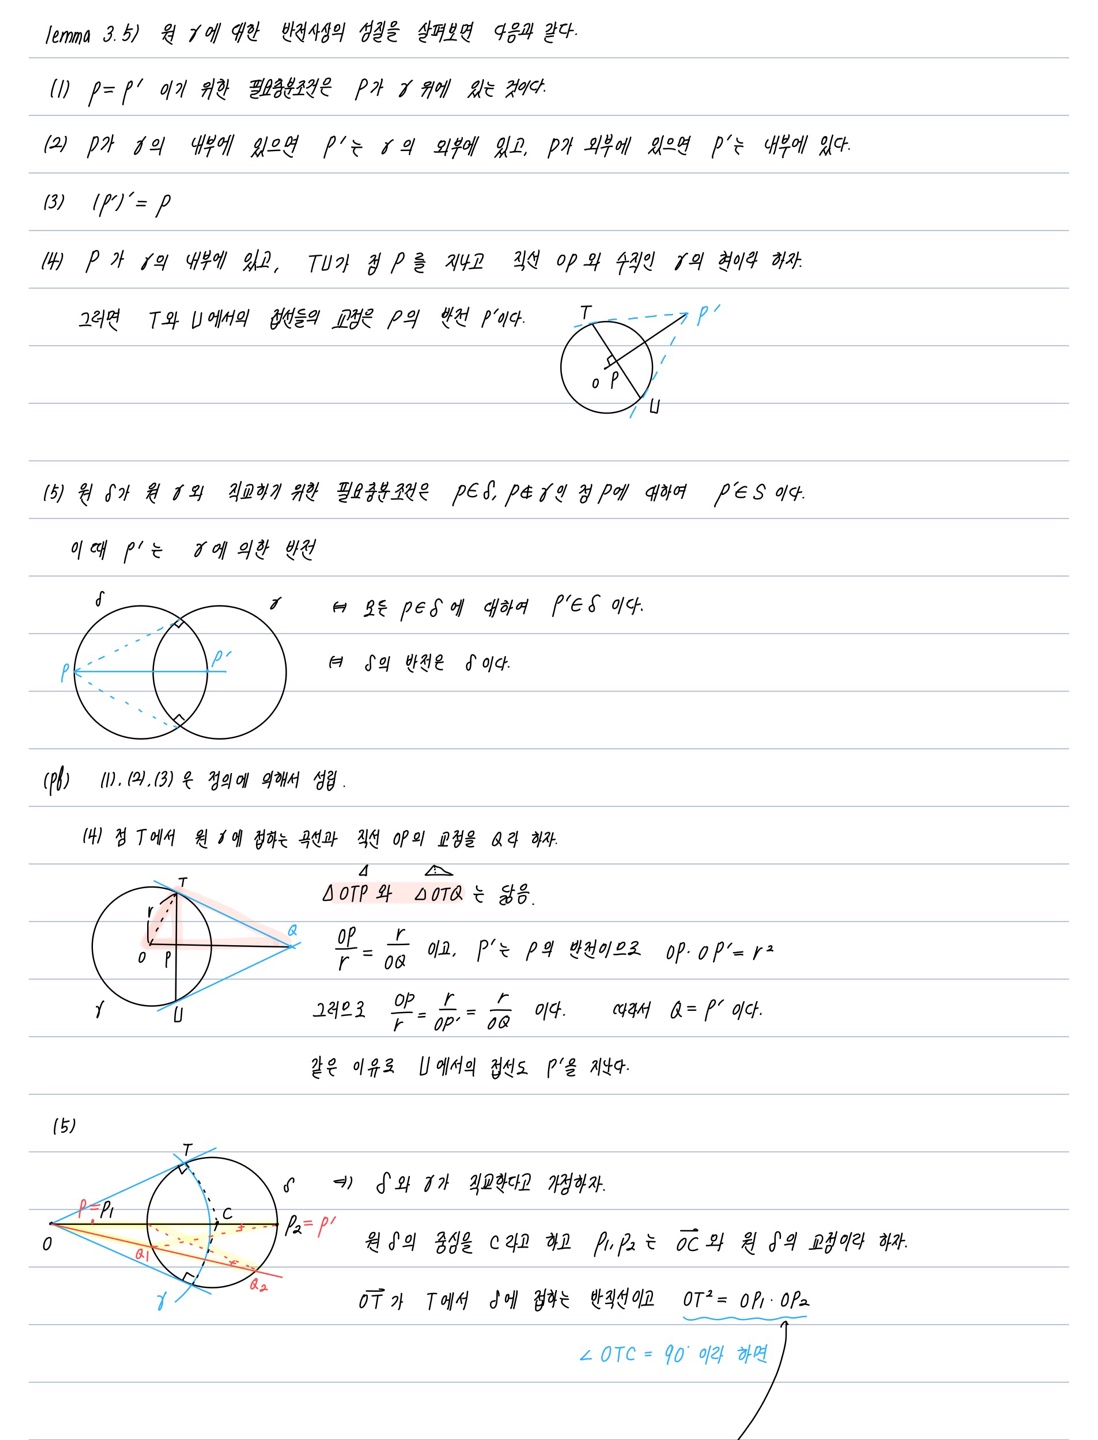 lemma 3.5) 원 γ에 대한 반전사상의 성질을 살펴보면 다음과 같다.
(1) P=P' 이기 위한 필요충분조건은 P가 γ 위에 있는 것이다.
(2) P가 γ의 내부에 있으면 P'는 γ의 외부에 있고, P가 외부에 있으면 P'는 내부에 있다.
(3) (P')' = P
(4) P가 γ의 내부에 있고, TU가 점 P를 지나고 직선 OP와 수직인 γ의 현이라 하자.
그러면 T와 U에서의 접선들의 교점은 P의 반전 P'이다.
T P'
O P
U
(5) 원 δ가 원 γ와 직교하기 위한 필요충분조건은 P∈δ, P∉γ인 점 P에 대하여 P'∈S 이다.
이때 P'는 γ에 의한 반전
δ γ
⇔ 모든 P∈δ에 대하여 P'∈δ 이다.
P P'
⇔ δ의 반전은 δ이다.
(pf) (1), (2), (3)은 정의에 의해서 성립.
(4) 점 T에서 원 γ에 접하는 곡선과 직선 OP의 교점을 Q라 하자.
T
r
O P Q
γ U
△OTP와 △OTQ는 닮음.
OP/r = r/OQ 이고, P'는 P의 반전이므로 OP·OP'=r²
그러므로 OP/r = r/OP' = r/OQ 이다. 따라서 Q=P' 이다.
같은 이유로 U에서의 접선도 P'을 지난다.
(5)
T
δ
P=P1 C P2=P'
O
Q1
Q2
γ
⇒) δ와 γ가 직교한다고 가정하자.
원 δ의 중심을 C라고 하고 P1, P2는 OC와 원 δ의 교점이라 하자.
OT가 T에서 δ에 접하는 반직선이고 OT²=OP1·OP2
∠OTC = 90° 이라 하면